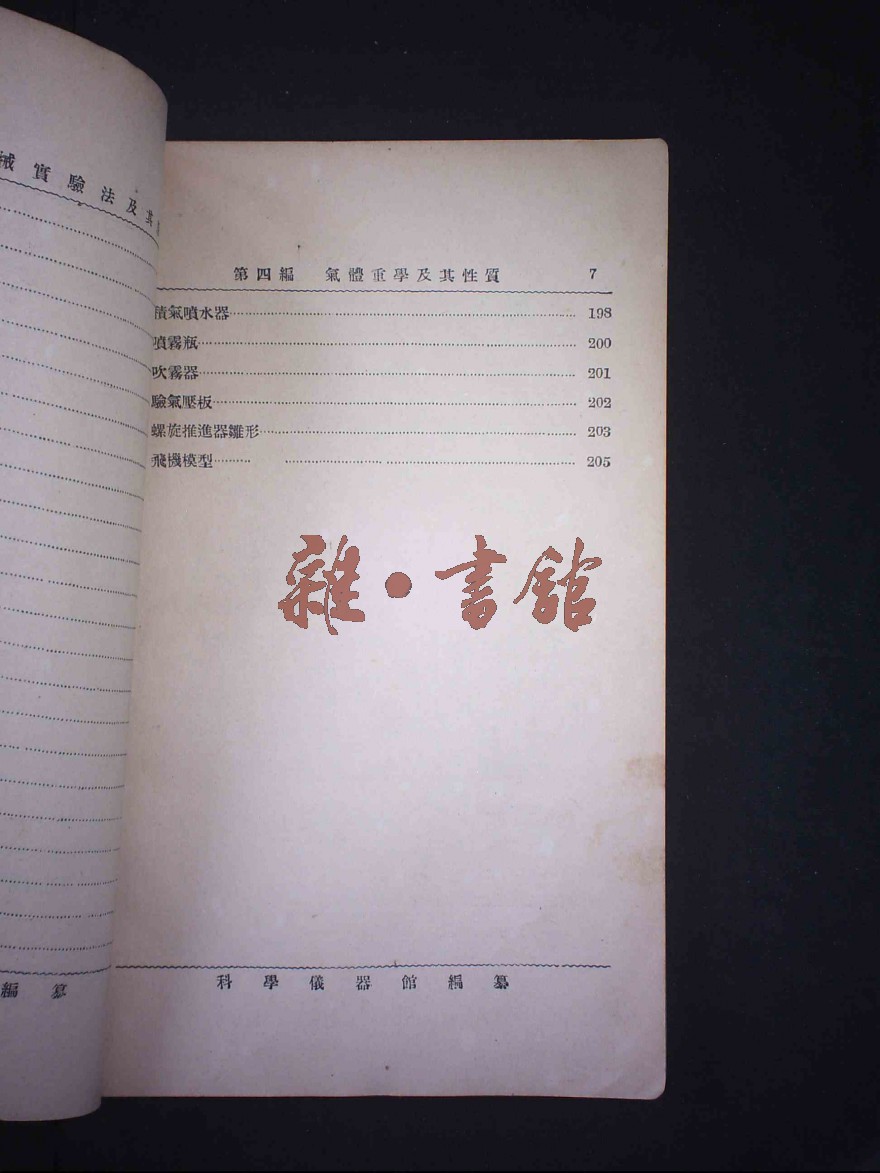 械實驗法及其
第四編 氣體重學及其性質 7
積氣噴水器 198
噴霧瓶 200
吹霧器 201
驗氣壓板 202
螺旋推進器雛形 203
飛機模型 205
雜·書館
科學儀器館編纂
編纂